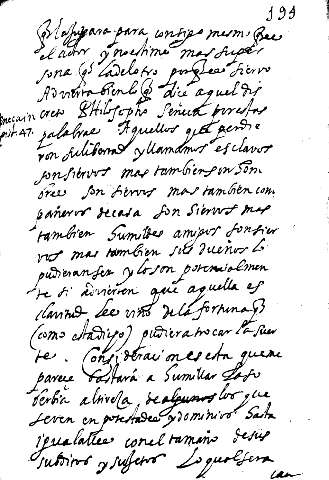 199
para para consigo mesmo
el actor y no estime mas su per
sona q̃ la del otro siervo
Advierta bien lo q̃ dice aquel dis
creto Philosopho Seneca por estas
Senecain
pist. 47.
palabras Aquellos que perdie
ron su libertad y llamamos esclavos
son siervos mas tambien son hom
bres son siervos mas tambien com
pañeros de casa son siervos mas
tambien humildes amigos son sier
vos mas tambien sus dueños lo
pudieran ser y lo son potencialmen
te si advierten que aquella es
clavitud les vino de la fortuna q̃
(como esta digo) pudiera trocar la suer
te. Consideracion es esta que me
parece bastará a humillar la so
berbia altiveza de algunos los que
se ven en potestades y dominios hasta
igualalles con el tamaño de sus
subditos y sujetos Lo qual sera
cau